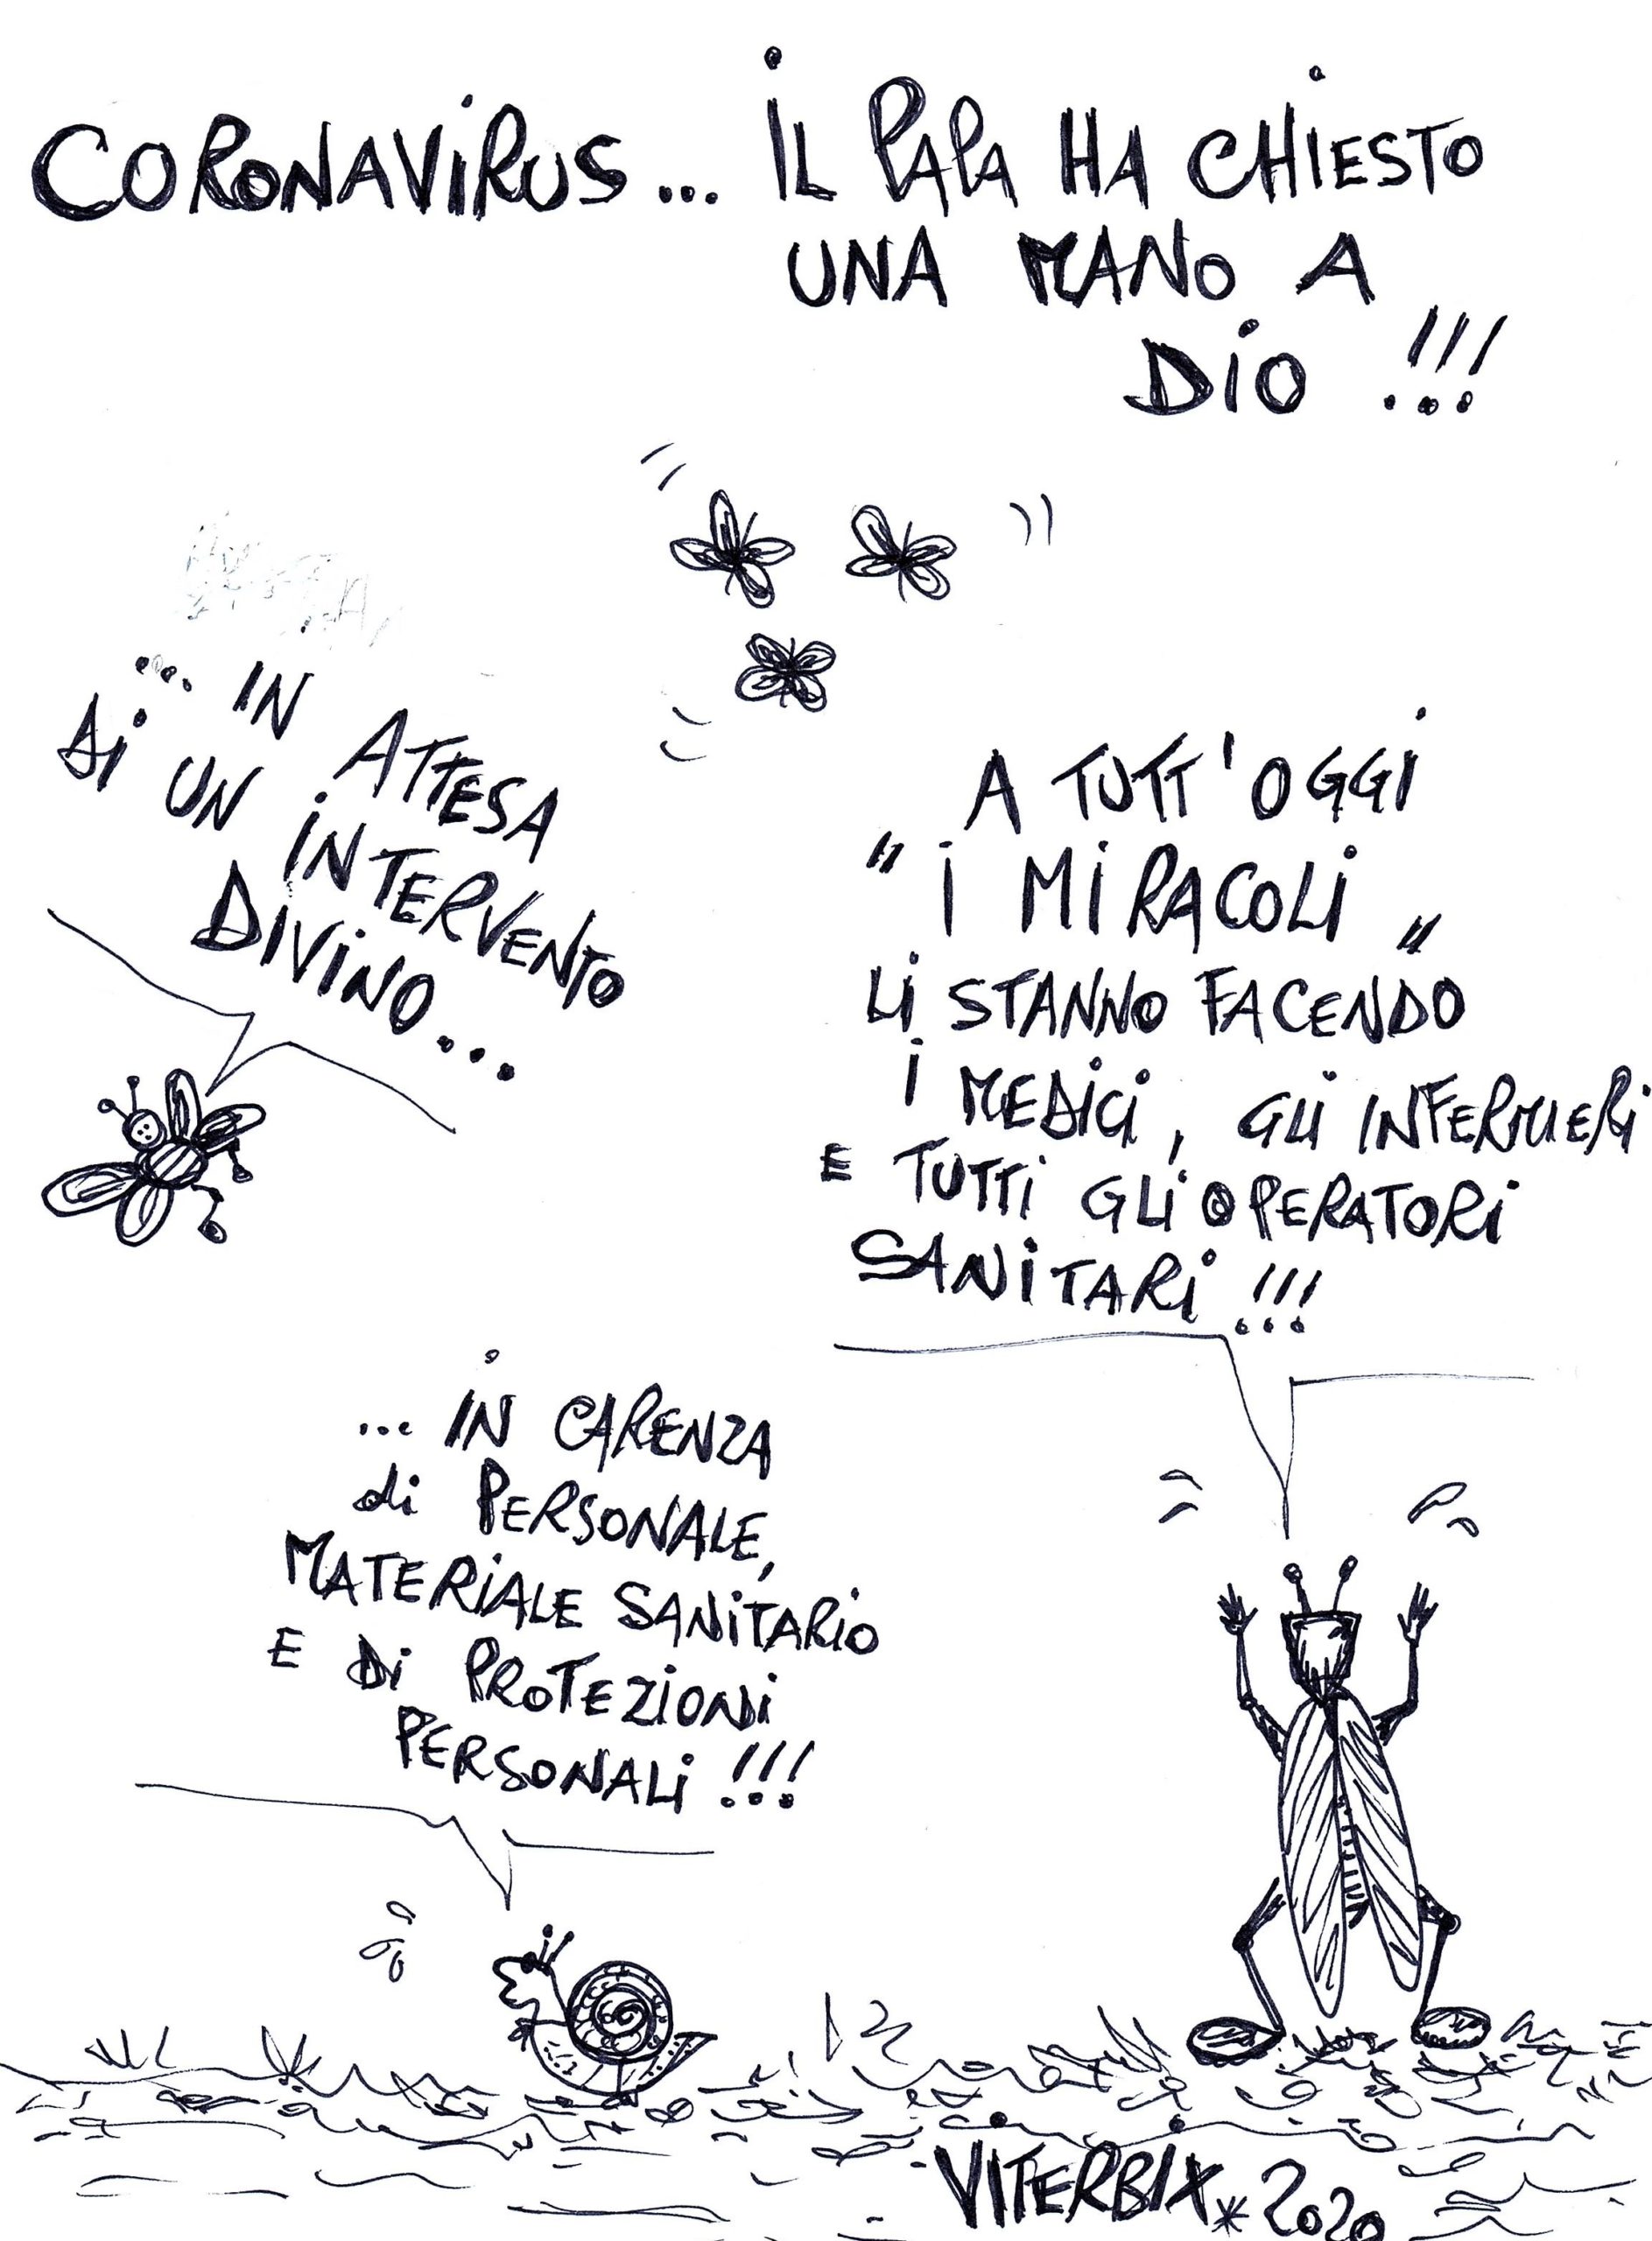 CORONAVIRUS... IL PAPA HA CHIESTO
UNA MANO A
DIO !!!
... IN ATTESA
DI UN INTERVENTO
DIVINO...
A TUTT'OGGI
"I MIRACOLI"
LI STANNO FACENDO
I MEDICI, GLI INFERMIERI
E TUTTI GLI OPERATORI
SANITARI !!!
... IN CARENZA
di PERSONALE,
MATERIALE SANITARIO
E DI PROTEZIONI
PERSONALI !!!
VITERBIX*2020